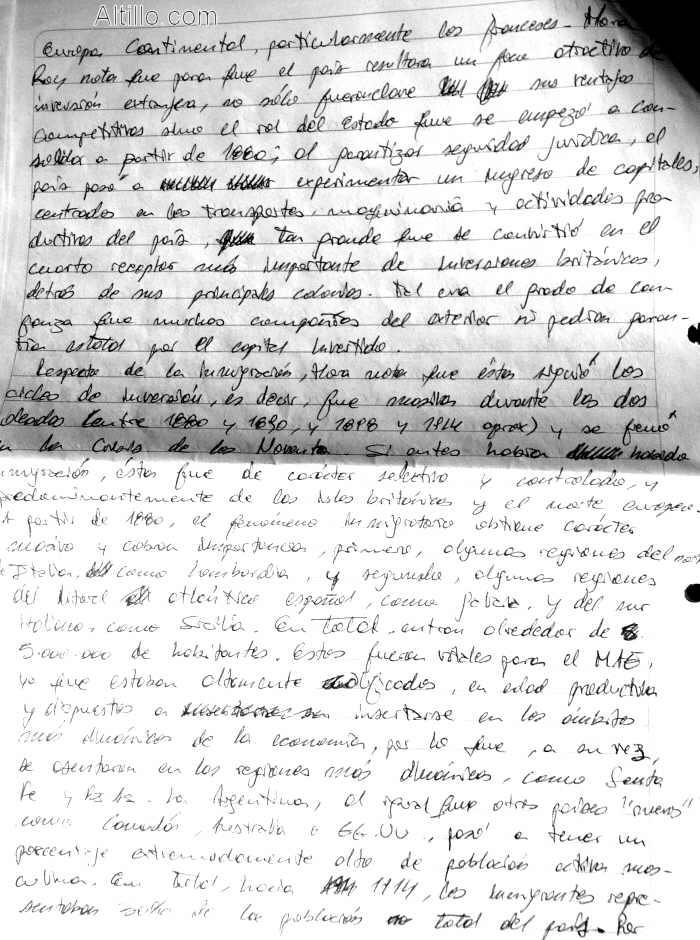 Altillo.com
Europa Continental, particularmente los franceses. Hora
Roy nota que para que el país resultara un foco atractivo de
inversión extranjera, no sólo fueron clave sus ventajas
competitivas sino el rol del Estado que se empezó a con-
solidar a partir de 1880; al garantizar seguridad jurídica, el
país pasó a experimentar un ingreso de capitales,
centrados en los transportes, maquinaria y actividades pro-
ductivas del país, tan grande que se convirtió en el
cuarto receptor más importante de inversiones británicas,
detrás de sus principales colonias. Tal era el grado de con-
fianza que muchas compañías del exterior ni pedían garan-
tía estatal por el capital invertido.
Respecto de la inmigración, Hora nota que ésta siguió los
ciclos de inversión, es decir, fue masiva durante las dos
décadas (entre 1880 y 1890, y 1898 y 1914 aprox) y se frenó
en la Crisis de los Noventa. Si antes había habido
inmigración, ésta fue de carácter selectivo y controlado, y
predominantemente de las islas británicas y el norte europeo.
A partir de 1880, el fenómeno inmigratorio obtiene carácter
masivo y cobran importancia, primero, algunas regiones del norte
de Italia, como Lombardía, y segundo, algunas regiones
del litoral atlántico español, como Galicia, y del sur
italiano, como Sicilia. En total, entran alrededor de
5.000.000 de habitantes. Estos fueron vitales para el MAE,
ya que estaban altamente calificados, en edad productiva
y dispuestos a insertarse en los ámbitos
más dinámicos de la economía, por lo que, a su vez,
se asentaron en las regiones más dinámicas, como Santa
Fe y Bs As. La Argentina, al igual que otros países "nuevos"
como Canadá, Australia o EE.UU., pasó a tener un
porcentaje extremadamente alto de población activa mas-
culina. En total, hacia 1914, los inmigrantes repre-
sentaban de la población total del país. Por